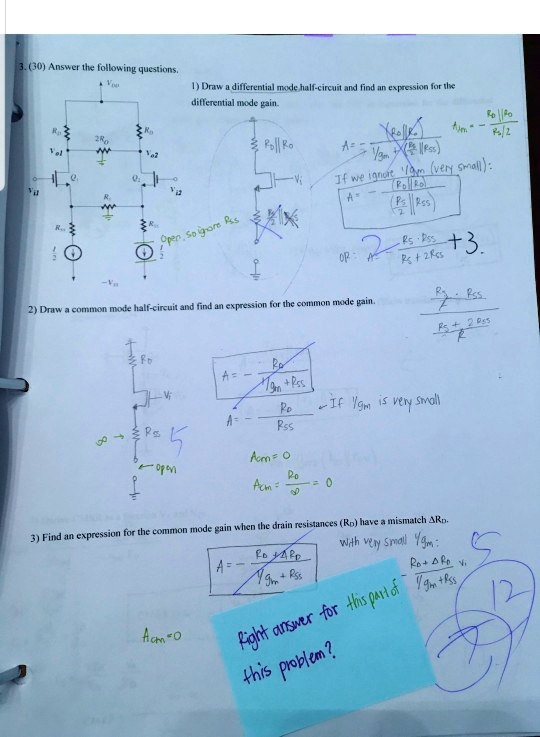 3. (30) Answer the following questions.
1) Draw a differential mode half-circuit and find an expression for the
differential mode gain.
VDD
RD
2RD
RD
Vo1
Vo2
Q1
Q2
Vi1
Vi2
Rs
Open, so ignore Rss
RD||RO
Vi
A = -
1/gm
Adm = - RD||RO
Rs/2
If we ignore 1/gm (very small):
A = - (RD||RO)
(Rs/2 || Rss)
OR: A - Rs · Rss
Rs + 2Rss
2 +3.
· Rss
2) Draw a common mode half-circuit and find an expression for the common mode gain.
RD
Vi
∞ → Rss
5
← open
A = - RD
1/gm + Rss
A = - RD
Rss
← If 1/gm is very small
Acm = 0
Acm = RD
∞ = 0
3) Find an expression for the common mode gain when the drain resistances (RD) have a mismatch ΔRD.
A = - RD + ΔRD
1/gm + Rss
With very small 1/gm:
- RD + ΔRD Vi
1/gm + Rss
5
12
Acm = 0
Right answer for this part of
this problem?